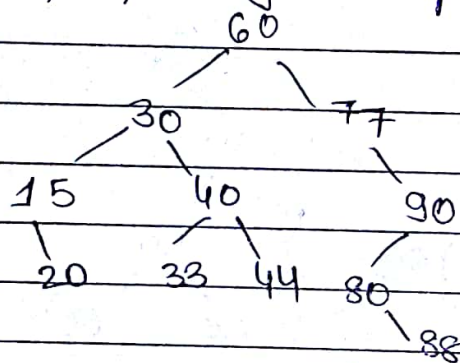 60
30 77
15 40 90
20 33 44 80
88